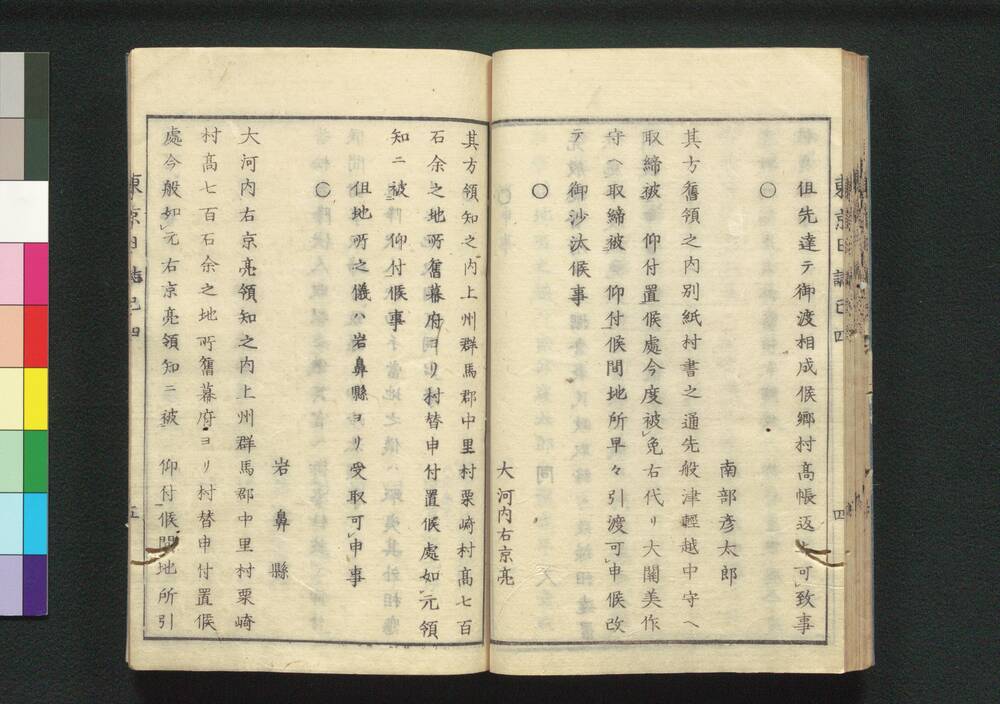 但先達テ御渡相成候郷村髙帳返上可致事
〇
南部彦太郎
其方舊領之内別紙村書之通先般津輕越中守ヘ
取締被 仰付置候處今度被免右代リ大關美作
守ヘ取締被 仰付候間地所早々引渡可申候改
テ御沙汰候事
〇
大河内右京亮
其方領知之内上州群馬郡中里村栗崎村髙七百
石余之地所舊幕府ヨリ村替申付置候處如元領
知ニ被 仰付候事
但地所之儀ハ岩鼻縣ヨリ受取可申事
〇
岩鼻縣
大河内右京亮領知之内上州群馬郡中里村栗崎
村髙七百石余之地所舊幕府ヨリ村替申付置候
處今般如元右京亮領知ニ被 仰付候間地所引
東京日誌己四
四
東京日誌己四
五